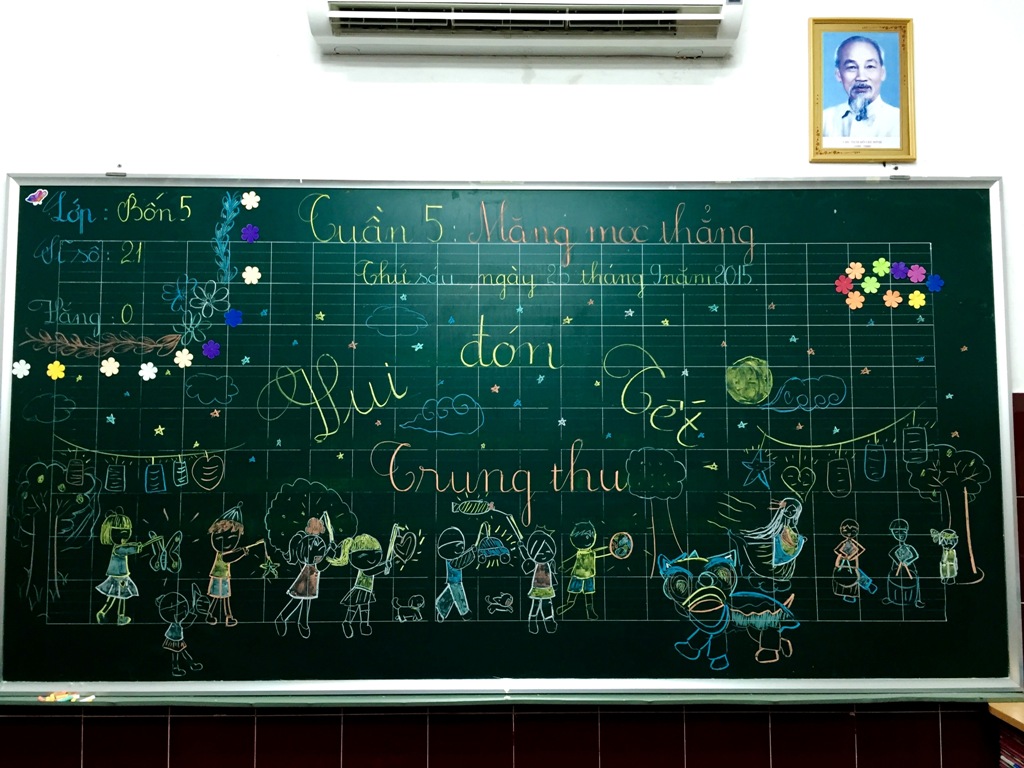 Lớp : Bốn 5
Sĩ số : 21
Vắng : 0
Tuần 5 : Măng mọc thẳng
Thứ sáu, ngày 25 tháng 9 năm 2015
Vui đón Tết
Trung thu